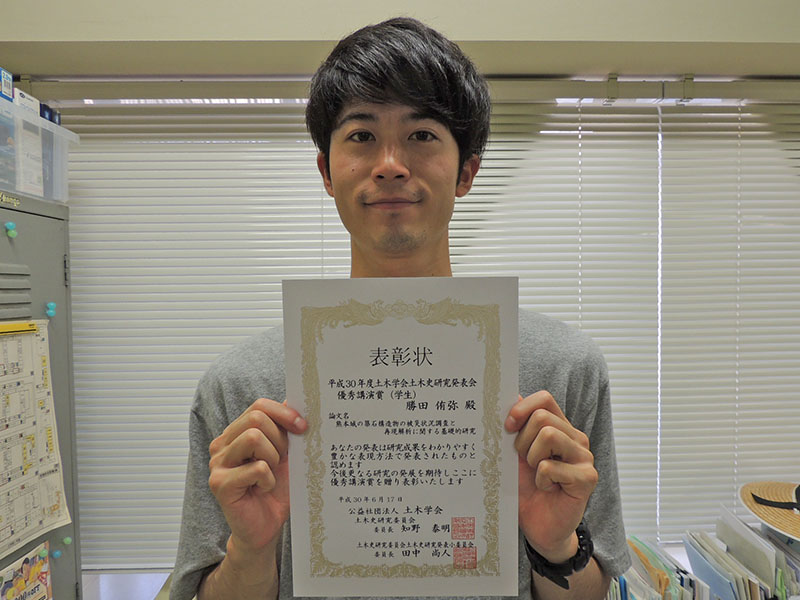 表彰状
平成30年度土木学会土木史研究発表会
優秀講演賞（学生）
勝田 侑弥 殿
論文名
熊本城の築石構造物の被災状況調査と
再現解析に関する基礎的研究
あなたの発表は研究成果をわかりやすく
豊かな表現方法で発表されたものと
認めます
今後更なる研究の発展を期待しここに
優秀講演賞を贈り表彰いたします
平成30年6月17日
公益社団法人 土木学会
土木史研究委員会
委員長 知野 泰明
土木史研究委員会土木史研究発表小委員会
委員長 田中 尚人